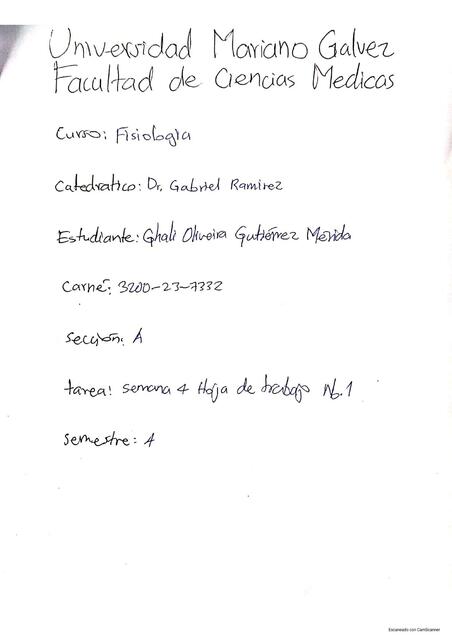 Universidad Mariano Galvez
Facultad de Ciencias Medicas
Curso: Fisiologia
Catedratico: Dr. Gabriel Ramirez
Estudiante: Ghali Oliveira Gutiérrez Mérida
Carné: 3200-23-7332
Sección: A
tarea: Semana 4 Hoja de trabajo No. 1
Semestre: A
Escaneado con CamScanner